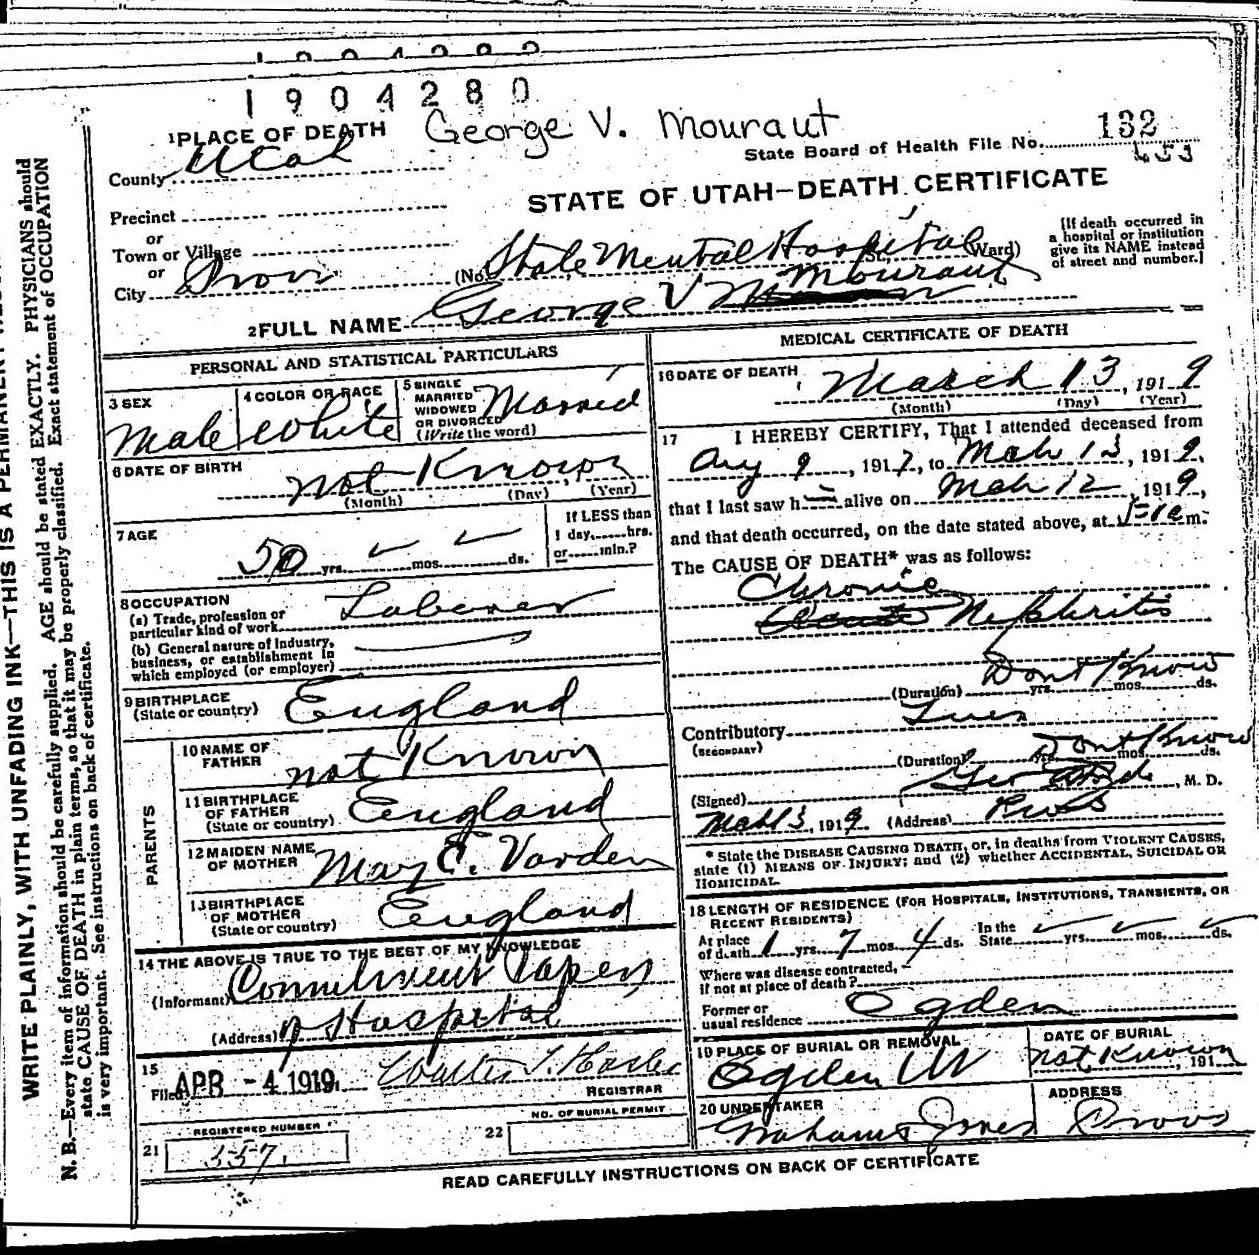 1904280
1904280
George V. Mouraut
1 PLACE OF DEATH
132
State Board of Health File No.
County Utah
STATE OF UTAH—DEATH CERTIFICATE
Precinct
or
Town or Village
or
City Provo
(No. State Mental Hospital St. Ward)
[If death occurred in
a hospital or institution
give its NAME instead
of street and number.]
2 FULL NAME George V Mouraut
PERSONAL AND STATISTICAL PARTICULARS
3 SEX
Male
4 COLOR OR RACE
White
5 SINGLE
MARRIED
WIDOWED
OR DIVORCED
(Write the word)
Married
6 DATE OF BIRTH
not Known
(Month) (Day) (Year)
7 AGE
50 yrs. mos. ds.
If LESS than
1 day, hrs.
or min.?
8 OCCUPATION
(a) Trade, profession or
particular kind of work Laborer
(b) General nature of Industry,
business, or establishment in
which employed (or employer)
9 BIRTHPLACE
(State or country) England
PARENTS
10 NAME OF
FATHER not Known
11 BIRTHPLACE
OF FATHER
(State or country) England
12 MAIDEN NAME
OF MOTHER Mary E. Varden
13 BIRTHPLACE
OF MOTHER
(State or country) England
14 THE ABOVE IS TRUE TO THE BEST OF MY KNOWLEDGE
(Informant) Commitment Papers
(Address) Hospital
15
Filed APR -4 1919. Walter T. Hasler
REGISTRAR
REGISTERED NUMBER
21 557.
NO. OF BURIAL PERMIT
22
MEDICAL CERTIFICATE OF DEATH
16 DATE OF DEATH
March 13, 1919
(Month) (Day) (Year)
17 I HEREBY CERTIFY, That I attended deceased from
Aug 9, 1917, to Mch 13, 1919,
that I last saw h alive on Mch 12, 1919,
and that death occurred, on the date stated above, at m.
The CAUSE OF DEATH* was as follows:
Chronic
Acute Nephritis
Dont Know
(Duration) yrs. mos. ds.
Contributory Lues
(SECONDARY)
Dont Know
(Duration) yrs. mos. ds.
(Signed) Geo , M. D.
Mch 13, 1919 (Address) Provo
* State the DISEASE CAUSING DEATH, or, in deaths from VIOLENT CAUSES,
state (1) MEANS OF INJURY; and (2) whether ACCIDENTAL, SUICIDAL OR
HOMICIDAL.
18 LENGTH OF RESIDENCE (FOR HOSPITALS, INSTITUTIONS, TRANSIENTS, OR
RECENT RESIDENTS)
At place
of death 1 yrs. 7 mos. 4 ds.
In the
State yrs. mos. ds.
Where was disease contracted,
if not at place of death?
Former or
usual residence Ogden
19 PLACE OF BURIAL OR REMOVAL
Ogden Ut
DATE OF BURIAL
not Known, 191
20 UNDERTAKER
Graham & Jones
ADDRESS
Provo
READ CAREFULLY INSTRUCTIONS ON BACK OF CERTIFICATE
WRITE PLAINLY, WITH UNFADING INK—THIS IS A PERMANENT
N. B.—Every item of information should be carefully supplied. AGE should be stated EXACTLY. PHYSICIANS should
state CAUSE OF DEATH in plain terms, so that it may be properly classified. Exact statement of OCCUPATION
is very important. See instructions on back of certificate.